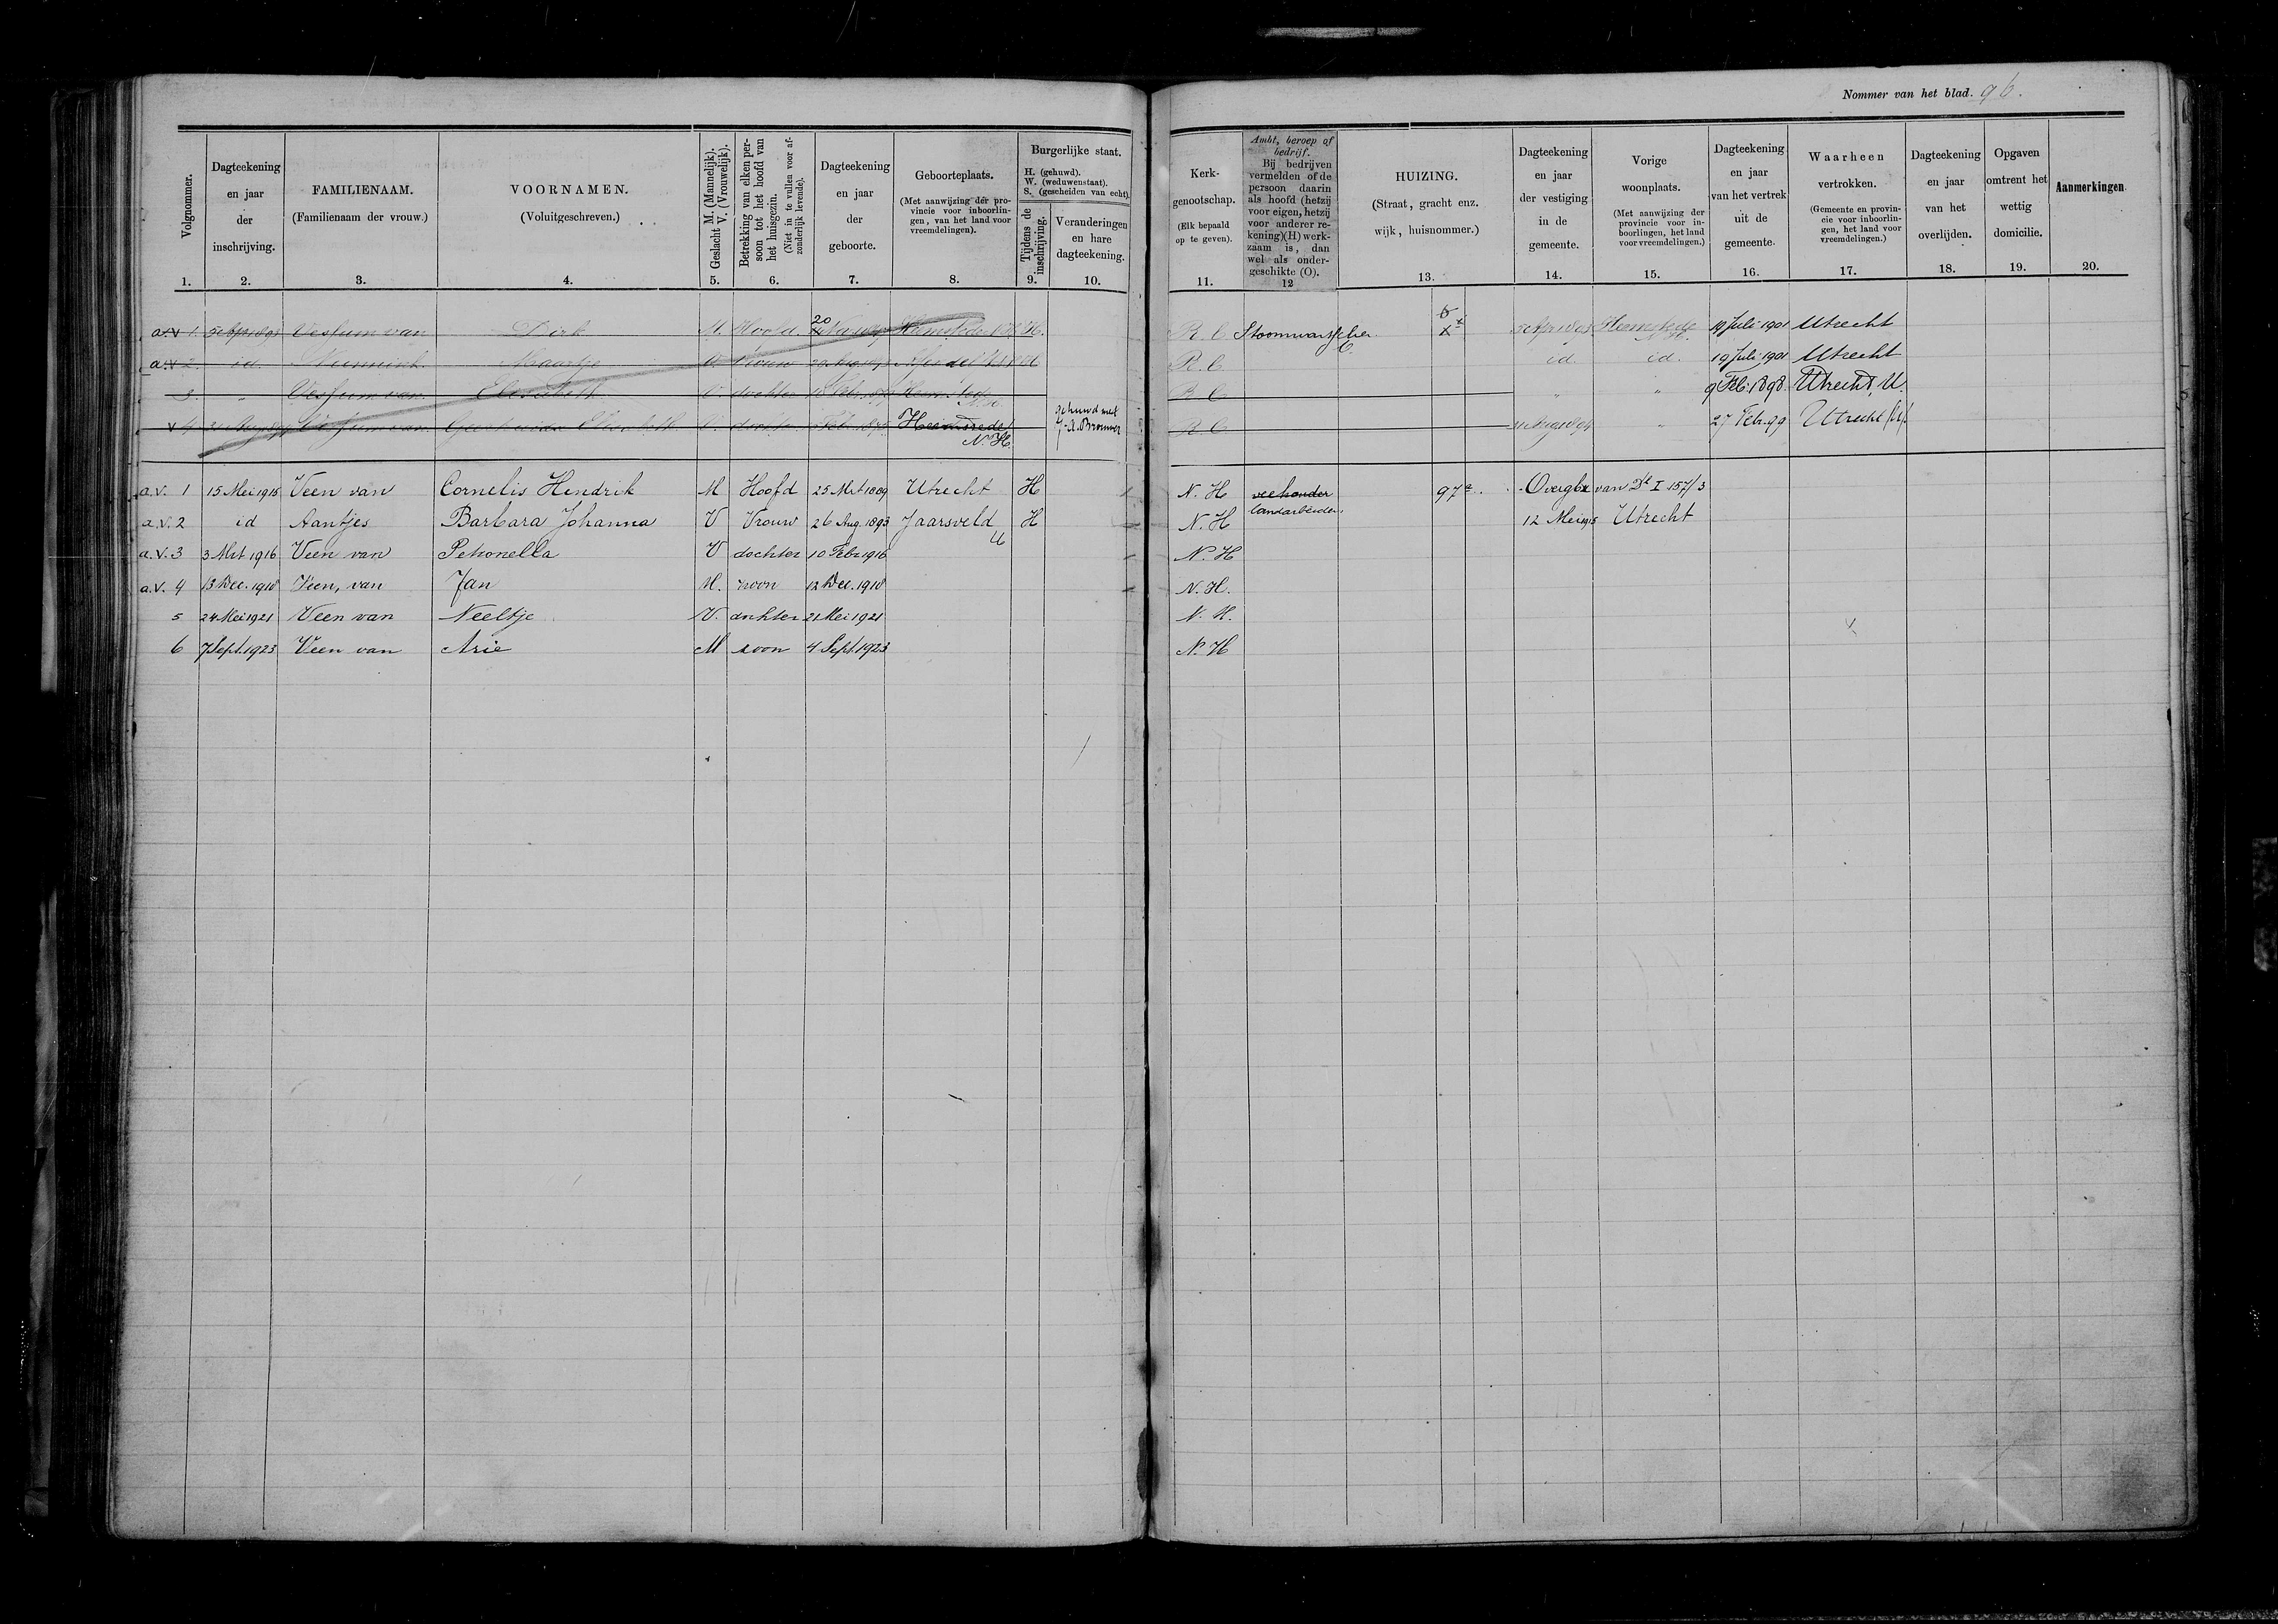 Nommer van het blad. 96.
Volgnommer.
Dagteekening en jaar der inschrijving.
FAMILIENAAM.
(Familienaam der vrouw.)
VOORNAMEN.
(Voluitgeschreven.)
Geslacht M. (Mannelijk). V. (Vrouwelijk).
Betrekking van elken persoon tot het hoofd van het huisgezin.
(Niet in te vullen voor afzonderlijk levende).
Dagteekening en jaar der geboorte.
Geboorteplaats.
(Met aanwijzing der provincie voor inboorlingen, van het land voor vreemdelingen).
Burgerlijke staat.
H. (gehuwd).
W. (weduwenstaat).
S. (gescheiden van echt).
Tijdens de inschrijving.
Veranderingen en hare dagteekening.
Kerkgenootschap.
(Elk bepaald op te geven).
Ambt, beroep of bedrijf.
Bij bedrijven vermelden of de persoon daarin als hoofd (hetzij voor eigen, hetzij voor anderer rekening) (H) werkzaam is, dan wel als ondergeschikte (O).
HUIZING.
(Straat, gracht enz. wijk, huisnommer.)
Dagteekening en jaar der vestiging in de gemeente.
Vorige woonplaats.
(Met aanwijzing der provincie voor inboorlingen, het land voor vreemdelingen.)
Dagteekening en jaar van het vertrek uit de gemeente.
Waarheen vertrokken.
(Gemeente en provincie voor inboorlingen, het land voor vreemdelingen.)
Dagteekening en jaar van het overlijden.
Opgaven omtrent het wettig domicilie.
Aanmerkingen
1. 2. 3. 4. 5. 6. 7. 8. 9. 10. 11. 12 13. 14. 15. 16. 17. 18. 19. 20.
a.v 1. van Dirk M. Hoofd 20 H. R.C 19 Juli 1901 Utrecht
a.v 2. id Maartje V. Vrouw R.C id id 19 Juli 1901 Utrecht
3. " van Elisabeth V. dochter R C " " 9 Feb. 1898. Utrecht, U.
v 4 van V. N.H. gehuwd met Brouwer R.C " 27 Febr. 99 Utrecht
a.v. 1 15 Mei 1915 Veen van Cornelis Hendrik M Hoofd 25 Mrt 1889 Utrecht H N. H veehouder landarbeider 97a van Dl I 157/3
a.v. 2 id Aantjes Barbara Johanna V Vrouw 26 Aug. 1893 Jaarsveld U H N. H 12 Mei 1915 Utrecht
a.v. 3 3 Mrt 1916 Veen van Petronella V dochter 10 Febr 1916 N. H
a.v. 4 13 Dec. 1918 Veen, van Jan M. zoon 12 Dec. 1918 N. H.
5 24 Mei 1921 Veen van Neeltje V. dochter 21 Mei 1921 N. H.
6 7 Sept. 1923 Veen van Arie M zoon 4 Sept. 1923 N. H